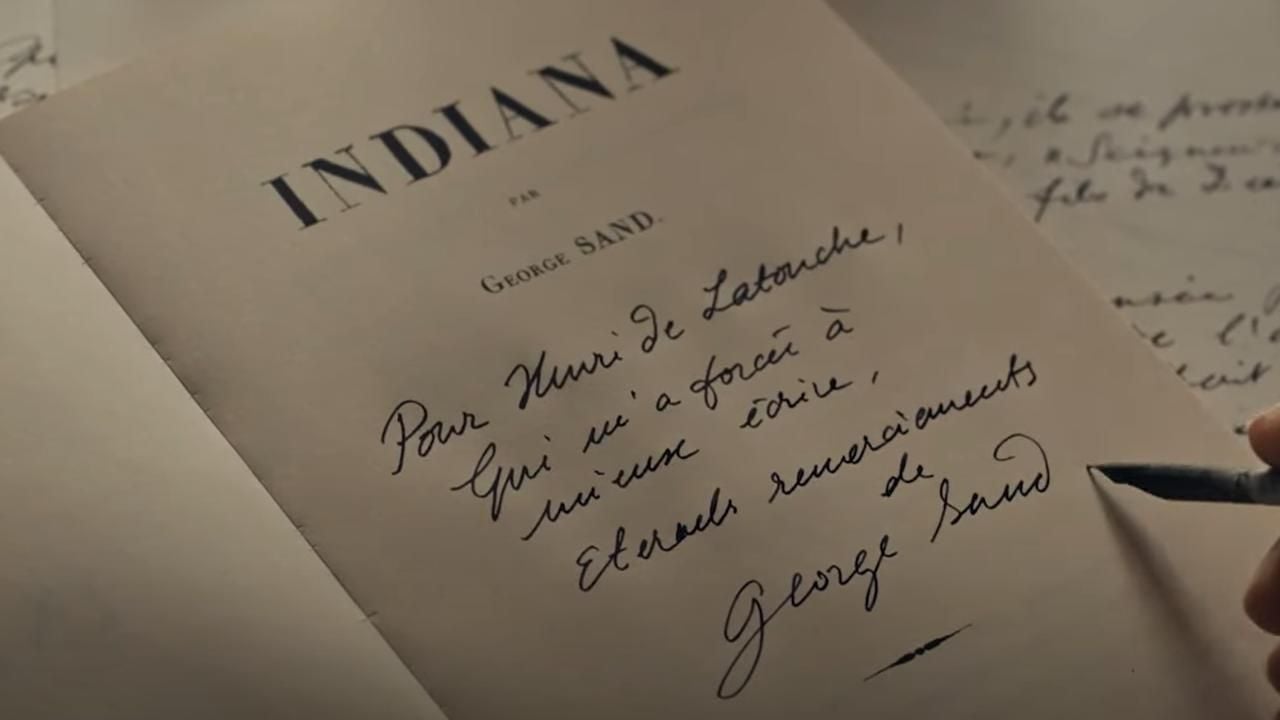 INDIANA
PAR
GEORGE SAND.
Pour Henri de Latouche,
Qui m'a forcée à
mieux écrire,
Eternels remerciements
de
George Sand
, il se
Seigneur
fils de
l'